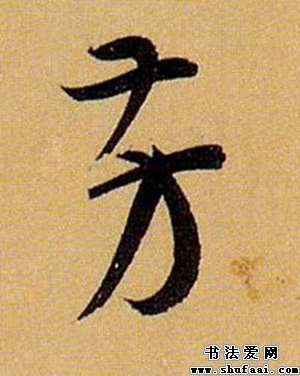 芳
书法爱网
www.shufaai.com